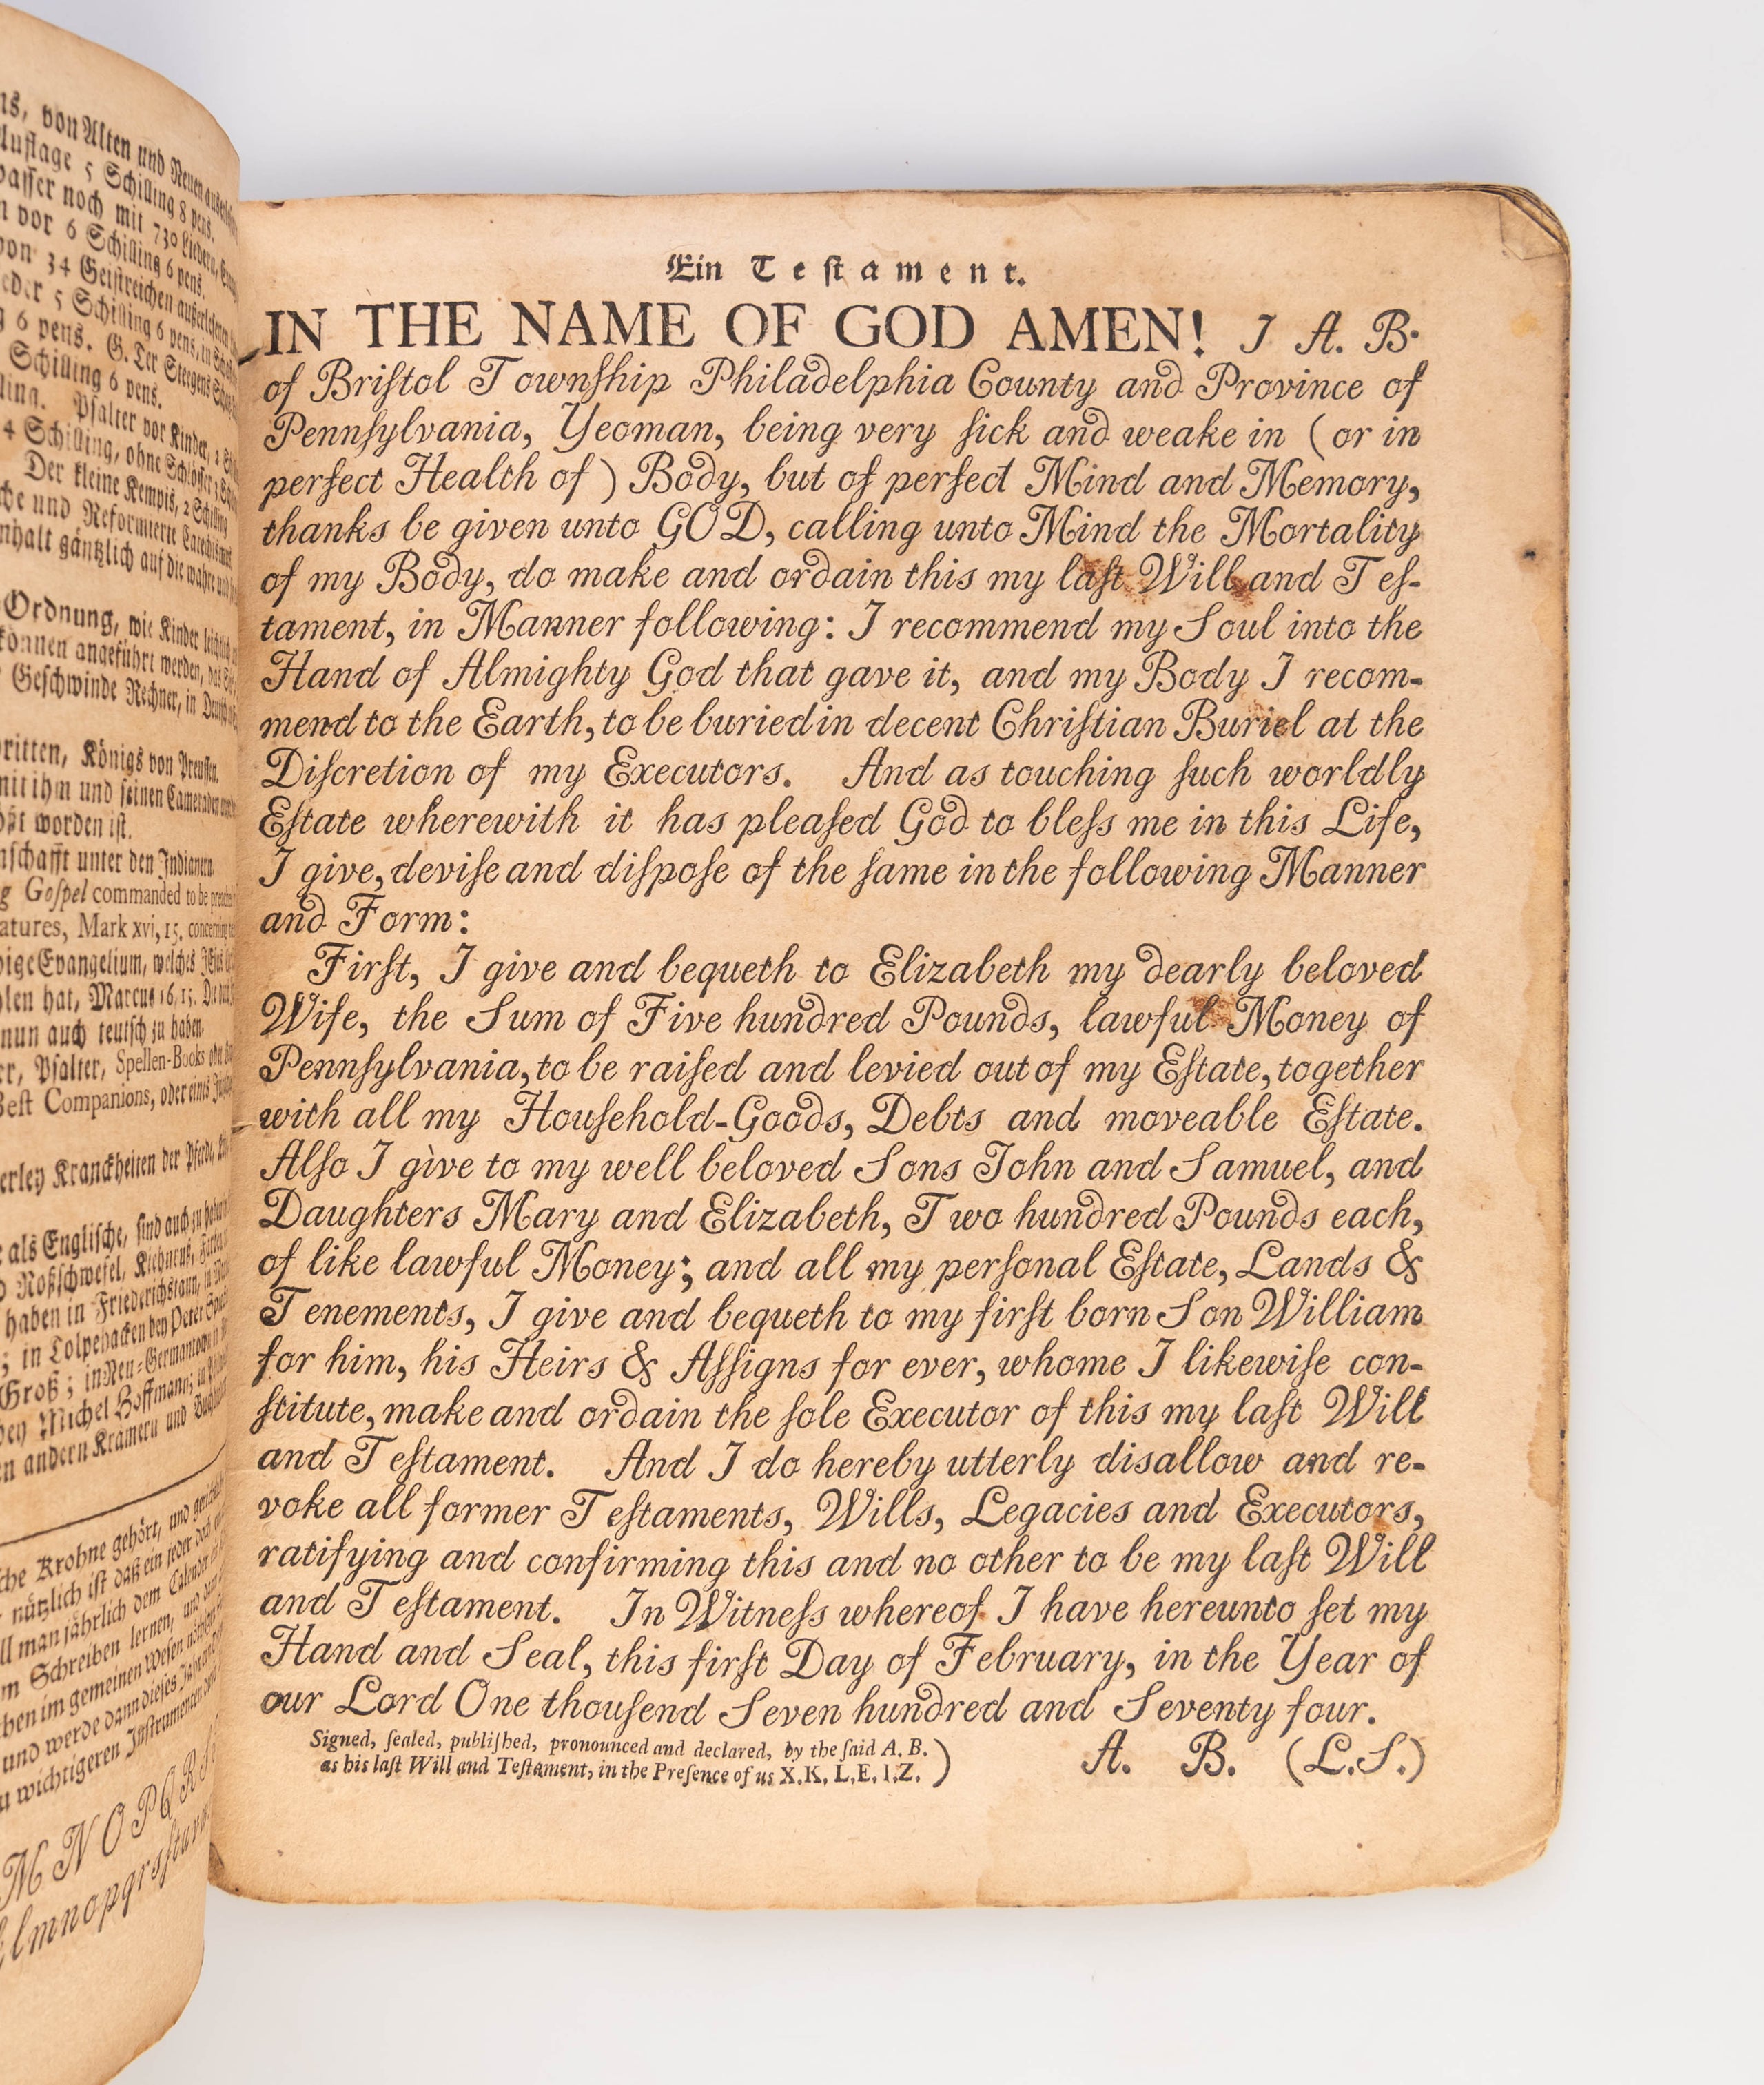 von Alten und Neuen
Auflage 5 Schilling 8 pens.
noch mit 730 Liedern,
vor 6 Schilling 6 pens.
von 34 Geiſtreichen
5 Schilling 6 pens, in
6 pens. G. Ter Steegens
Schilling 6 pens.
Pſalter vor Kinder,
4 Schilling, ohne Schlöſſer
Der kleine Kempis, 2 Schilling
und Reformierte Catechismus
gäntzlich auf die wahre und
Ordnung, wie Kinder
können angeführt werden, das
Geſchwinde Rechner, in
dritten, Königs von Preuſſen,
mit ihm und ſeinen Cameraden
worden iſt.
unter den Indianern.
Goſpel commanded to be
Mark xvi, 15. concerning
Evangelium, welches
hat, Marcus 16, 15.
nun auch teutſch zu haben.
Pſalter, Spellen-Books
Beſt Companions, oder eines
Kranckheiten der Pferde,
als Engliſche, ſind auch zu haben
Roßſchwefel,
haben in Friederichſtaun, in
in Tolpehacken bey Peter
Groß; in Neu-Germantown
bey Michel Hoffmann; in
andern Krämern und
Krohne gehört, und
nützlich iſt daß ein jeder
man jährlich dem Calender
Schreiben lernen, und
im gemeinen Weſen
und werde dann dieſes
wichtigeren Inſtrumenten
M N O P Q R
l m n o p q r s ſ t u v
Ein Teſtament.
IN THE NAME OF GOD AMEN! I A. B.
of Briſtol Townſhip Philadelphia County and Province of
Pennſylvania, Yeoman, being very ſick and weake in (or in
perfect Health of) Body, but of perfect Mind and Memory,
thanks be given unto GOD, calling unto Mind the Mortality
of my Body, do make and ordain this my laſt Will and Teſ-
tament, in Manner following: I recommend my Soul into the
Hand of Almighty God that gave it, and my Body I recom-
mend to the Earth, to be buried in decent Chriſtian Buriel at the
Diſcretion of my Executors. And as touching ſuch worldly
Eſtate wherewith it has pleaſed God to bleſs me in this Life,
I give, deviſe and diſpoſe of the ſame in the following Manner
and Form:
Firſt, I give and bequeth to Elizabeth my dearly beloved
Wife, the Sum of Five hundred Pounds, lawful Money of
Pennſylvania, to be raiſed and levied out of my Eſtate, together
with all my Houſehold-Goods, Debts and moveable Eſtate.
Alſo I give to my well beloved Sons John and Samuel, and
Daughters Mary and Elizabeth, Two hundred Pounds each,
of like lawful Money; and all my perſonal Eſtate, Lands &
Tenements, I give and bequeth to my firſt born Son William
for him, his Heirs & Aſſigns for ever, whome I likewiſe con-
ſtitute, make and ordain the ſole Executor of this my laſt Will
and Teſtament. And I do hereby utterly disallow and re-
voke all former Teſtaments, Wills, Legacies and Executors,
ratifying and confirming this and no other to be my laſt Will
and Teſtament. In Witneſs whereof I have hereunto ſet my
Hand and Seal, this firſt Day of February, in the Year of
our Lord One thouſend Seven hundred and Seventy four.
Signed, ſealed, publiſhed, pronounced and declared, by the ſaid A. B.
as his laſt Will and Teſtament, in the Preſence of us X.K, L.E, I.Z.)
A. B. (L.S.)